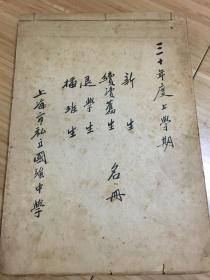 三十年度上學期
新生
續讀舊生
退學生
插班生
名冊
上海市私立國強中學